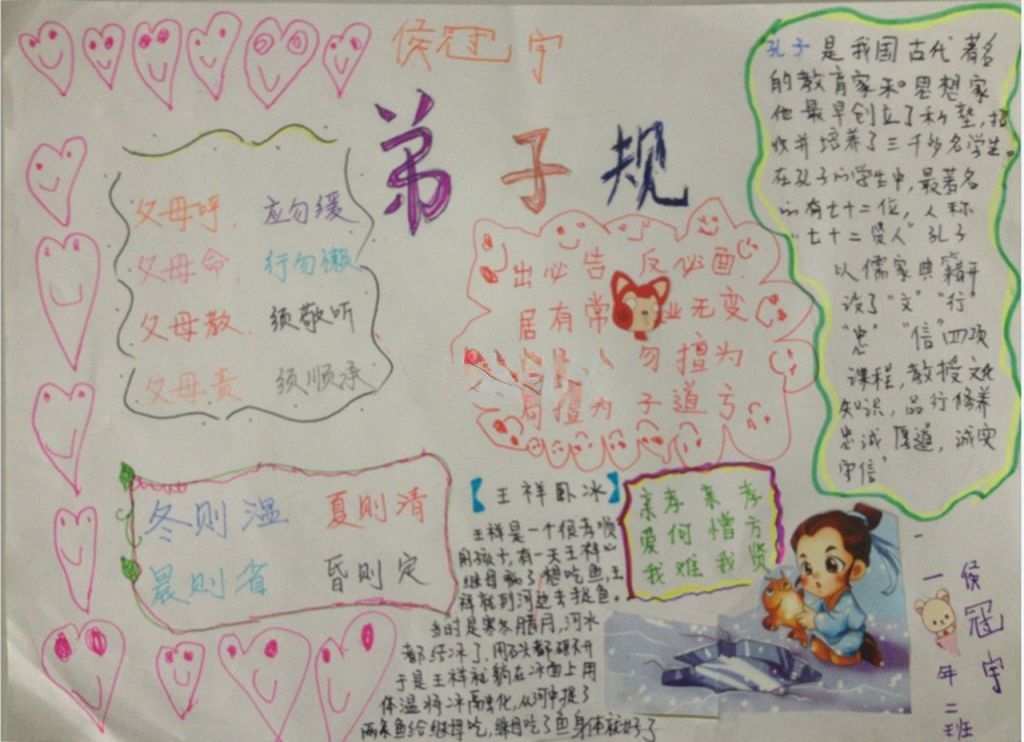 侯冠宇
弟子规
父母呼 应勿缓
父母命 行勿懒
父母教 须敬听
父母责 须顺承
冬则温 夏则清
晨则省 昏则定
出必告 反必面
居有常 业无变
勿擅为
擅为 子道亏
亲爱我 孝何难
亲憎我 孝方贤
【王祥卧冰】
王祥是一个很孝顺
的孩子，有一天王祥的
继母病了想吃鱼，王
祥就到河边去捉鱼。
当时是寒冬腊月，河水
都结冰了，用石头都砸不开
于是王祥就躺在冰面上用
体温将冰融化，从河中捉了
两条鱼给继母吃，继母吃了鱼身体就好了
孔子是我国古代著名
的教育家和思想家
他最早创立了私塾，招
收并培养了三千多名学生。
在孔子的学生中，最著名
的有七十二位，人称
“七十二贤人”孔子
以儒家典籍开
设了“文”“行”
“忠”“信”四项
课程，教授文化
知识，品行修养
忠诚厚道，诚实
守信
侯冠宇
一年二班